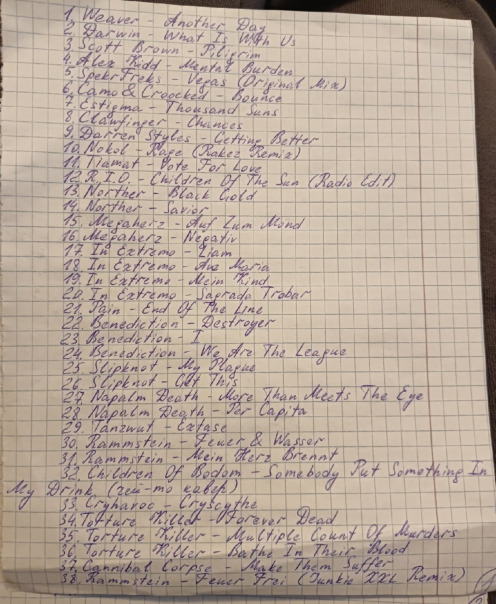 1. Weaver - Another Day
2. Darwin - What Is With Us
3. Scott Brown - Pilgrim
4. Alex Kidd - Mental Burden
5. SpekrFreks - Vegas (Original Mix)
6. Camo & Croocked - Bounce
7. Estigma - Thousand Suns
8. Clawfinger - Chances
9. Darren Styles - Getting Better
10. Nokol - Rage (Rakez Remix)
11. Tiamat - Vote For Love
12. R.I.O. - Children Of The Sun (Radio Edit)
13. Norther - Black Gold
14. Norther - Savior
15. Megaherz - Auf Zum Mond
16. Megaherz - Negativ
17. In Extremo - Liam
18. In Extremo - Ave Maria
19. In Extremo - Mein Kind
20. In Extremo - Sagrada Trobar
21. Pain - End Of The Line
22. Benediction - Destroyer
23. Benediction - I
24. Benediction - We Are The League
25. Slipknot - My Plague
26. Slipknot - Get This
27. Napalm Death - More Than Meets The Eye
28. Napalm Death - Per Capita
29. Tanzwut - Extase
30. Rammstein - Feuer & Wasser
31. Rammstein - Mein Herz Brennt
32. Children Of Bodom - Somebody Put Something In
My Drink (чей-то кавер)
33. Cryhavoc - Cryscythe
34. Torture Killer - Forever Dead
35. Torture Killer - Multiple Count Of Murders
36. Torture Killer - Bathe In Their Blood
37. Cannibal Corpse - Make Them Suffer
38. Rammstein - Feuer Frei (Junkie XXL Remix)